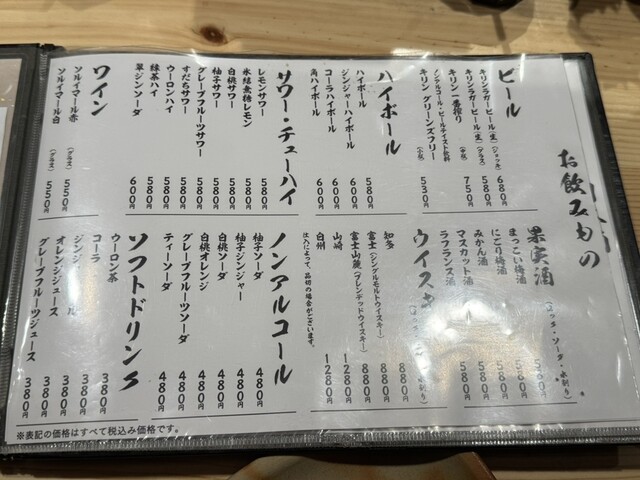 お飲みもの
ビール
キリンラガービール(生)(ジョッキ) 680円
キリンラガービール(生)(グラス) 580円
キリン一番搾り(中瓶) 750円
ノンアルコール・ビールテイスト飲料
キリン グリーンズフリー(小瓶) 530円
ハイボール
ハイボール 580円
ジンジャーハイボール 600円
コーラハイボール 600円
角ハイボール 600円
サワー・チューハイ
レモンサワー 580円
氷結無糖レモン 580円
白桃サワー 580円
柚子サワー 580円
グレープフルーツサワー 580円
すだちサワー 580円
ウーロンハイ 580円
緑茶ハイ 580円
翠ジンソーダ 600円
ワイン
ソルイマール赤(グラス) 550円
ソルイマール白(グラス) 550円
果実酒(ロック・ソーダ・水割り)
まっこい梅酒 580円
にごり梅酒 580円
みかん酒 580円
マスカット酒 580円
ラフランス酒 580円
ウイスキ
水割り)
知多 880円
富士(シングルモルトウイスキー) 880円
富士山麓(ブレンデッドウイスキー) 880円
山崎 1280円
白州 1280円
仕入によって、品切の場合がございます。
ノンアルコール
柚子ソーダ 480円
柚子ジンジャー 480円
白桃ソーダ 480円
白桃オレンジ 480円
グレープフルーツソーダ 480円
ティーソーダ 480円
ソフトドリンク
ウーロン茶 380円
コーラ 380円
ジンジ ール 380円
オレンジジュース 380円
グレープフルーツジュース 380円
※表記の価格はすべて税込み価格です。